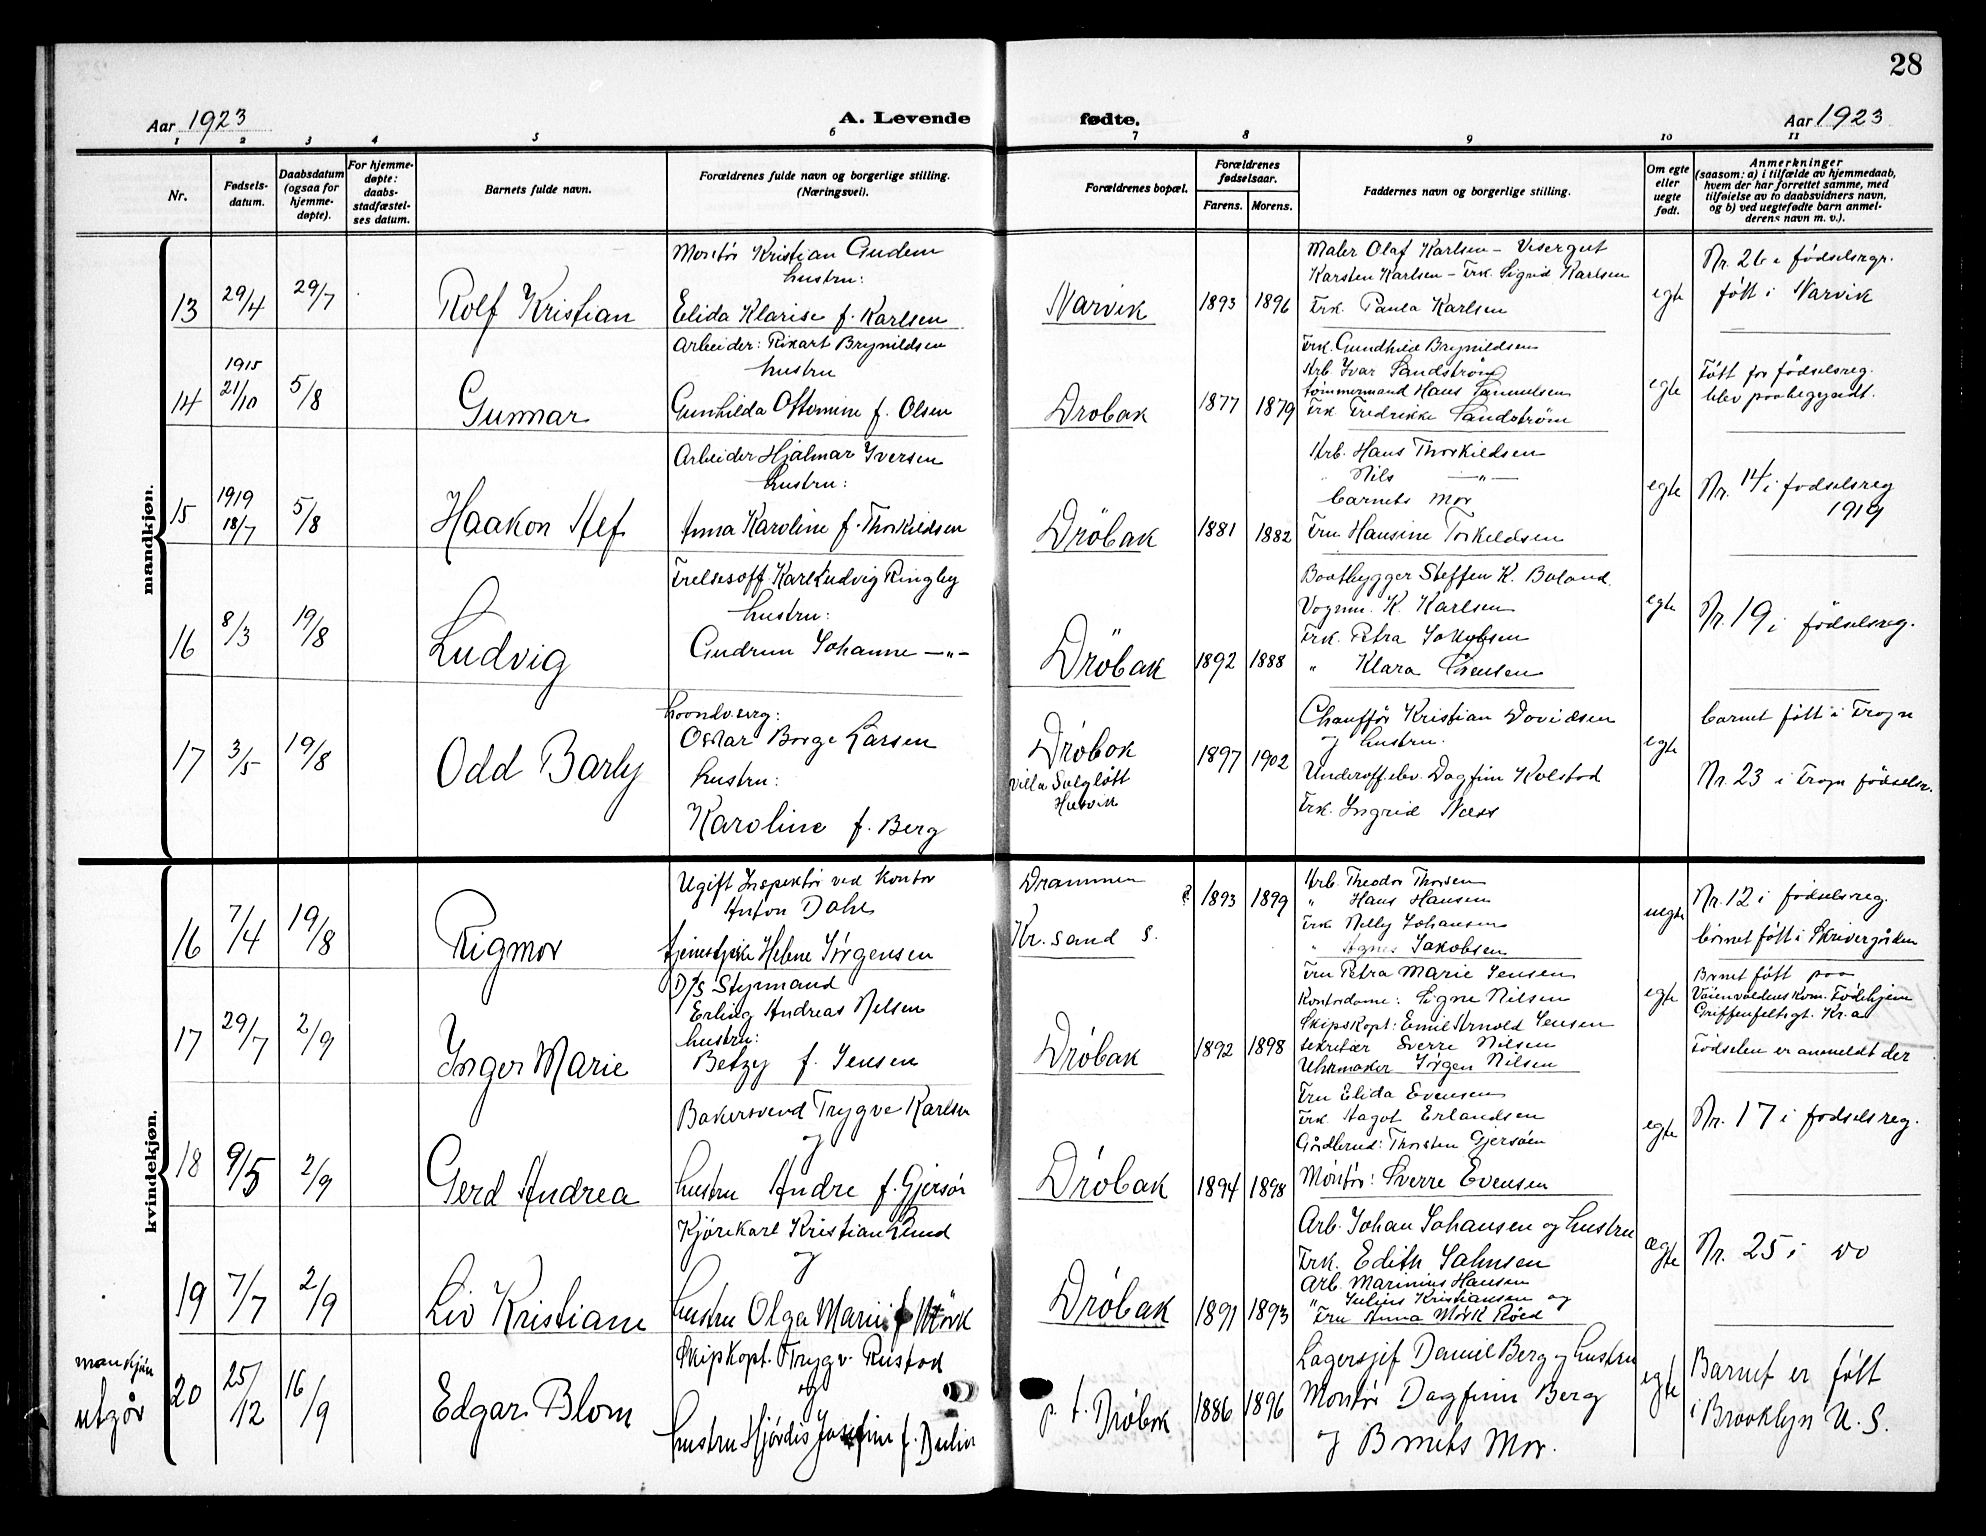 28
Aar 1923
A. Levende
fødte.
Aar 1923
1 2 3 4 5 6 7 8 9 10 11
Nr.
Fødsels-
datum.
Daabsdatum
(ogsaa for
hjemme-
døpte).
For hjemme-
døpte:
daabs-
stadfæstel-
ses datum.
Barnets fulde navn.
Forældrenes fulde navn og borgerlige stilling.
(Næringsvei).
Forældrenes bopæl.
Forældrenes
fødselsaar.
Farens. Morens.
Faddernes navn og borgerlige stilling.
Om egte
eller
uegte
født.
Anmerkninger
(saasom: a) i tilfælde av hjemmedaab,
hvem der har forrettet samme, med
tilføielse av to daabsvidners navn,
og b) ved uegtefødte barn anmel-
derens navn m. v.).
mandkjøn.
13
29/4
29/7
Rolf Kristian
Montör Kristian Gudem
hustru:
Elida Klarise f. Karlsen
Narvik
1893 1896
Maler Olaf Karlsen - Visergut
Karsten Karlsen - Frk. Sigrid Karlsen
Frk. Paula Karlsen
egte
Nr. 26 i födselsregr.
fött i Narvik
14
1915
21/10
5/8
Gunnar
Arbeider: Rikart Brynildsen
hustru
Gunhilda Ottomine f. Olsen
Dröbak
1877 1879
Frk. Gundhild Brynildsen
Arb Ivar Sandström
tömmermand Hans Samuelsen
Frk Fredrikke Sandström
egte
Fött för födselsreg.
blev paabegyndt.
15
1919
18/7
5/8
Haakon Alf
Arbeider Hjalmar Iversen
hustru:
Anna Karoline f. Thorkildsen
Dröbak
1881 1882
Arb. Hans Thorkildsen
" Nils —"—
barnets mor
Fru Hansine Torkeldsen
egte
Nr. 14 i fodselsreg
1919
16
8/3
19/8
Ludvig
Frelsesoff. Karl Ludvig Ringby
hustru:
Gudrun Johanne —"—
Dröbak
1892 1888
Baatbygger Steffen K. Boland
Vognm. K. Karlsen
Frk. Petra Jakobsen
" Klara Sörensen
egte
Nr. 19 i födselsreg.
17
3/5
19/8
Odd Barly
haandverg:
Oskar Borge Larsen
hustru:
Karoline f. Berg
Dröbak
villa Solglött
Husvik
1897 1902
Chafför Kristian Davidsen
og hustru.
Underoff.elev. Dagfinn Kolstad
Frk. Ingrid Næss
egte
barnet fött i Frogn
Nr. 23 i Frogn födselsr.
kvindekjøn.
16
7/4
19/8
Rigmor
Ugift Inspektör ved kontor
Anton Dahl
tjenestepike Helene Jörgensen
Drammen
Kr. sand S.
? 1893 1899
Arb. Theodor Thorsen
" Hans Hansen
Frk Nelly Johansen
" Agnes Jakobsen
uegte
Nr. 12 i födselsreg.
barnet fött i Skrivergården
17
29/7
2/9
Inger Marie
D/S Styrmand
Erling Andreas Nilsen
hustru:
Betzy f. Jensen
Dröbak
1892 1898
Fru Petra Marie Jensen
Kontordame: Signe Nilsen
Skipskapt: Emil Arnold Jensen
sekretær Sverre Nilsen
Uhrmaker Jörgen Nilsen
egte
Barnet fött paa
Griffenfeltsgt. Kr.a
Födselen er anmeldt der
18
9/5
2/9
Gerd Andrea
Bakersvend Trygve Karlsen
og
hustru Andre f. Gjersöe
Dröbak
1894 1898
Fru Elida Evensen
Frk. Aagot Erlandsen
Thorsten Gjersöen
Montör: Sverre Evensen
egte
Nr. 17 i fodselsreg.
19
7/7
2/9
Liv Kristiane
Kjörekarl Kristian Lund
og
hustru Olga Marie f. Mörk
Dröbak
1891 1893
Arb. Johan Johansen og hustru
Frk. Edith Salmsen
Arb. Marinius Hansen
" Julius Kristiansen og
Fru Anna Mörk Röed
ægte
Nr. 25 i do
mankjön
utgör
20
25/12
16/9
Edgar Blom
Skipkapt. Trygv. Rustad
og
hustru Hjördis Josefine f.
p. t. Dröbak
1886 1896
Lagersjef Daniel Berg og hustru
Montör Dagfinn Berg
og Barnets Mor.
egte
Barnet er fött
i Brooklyn U. S.